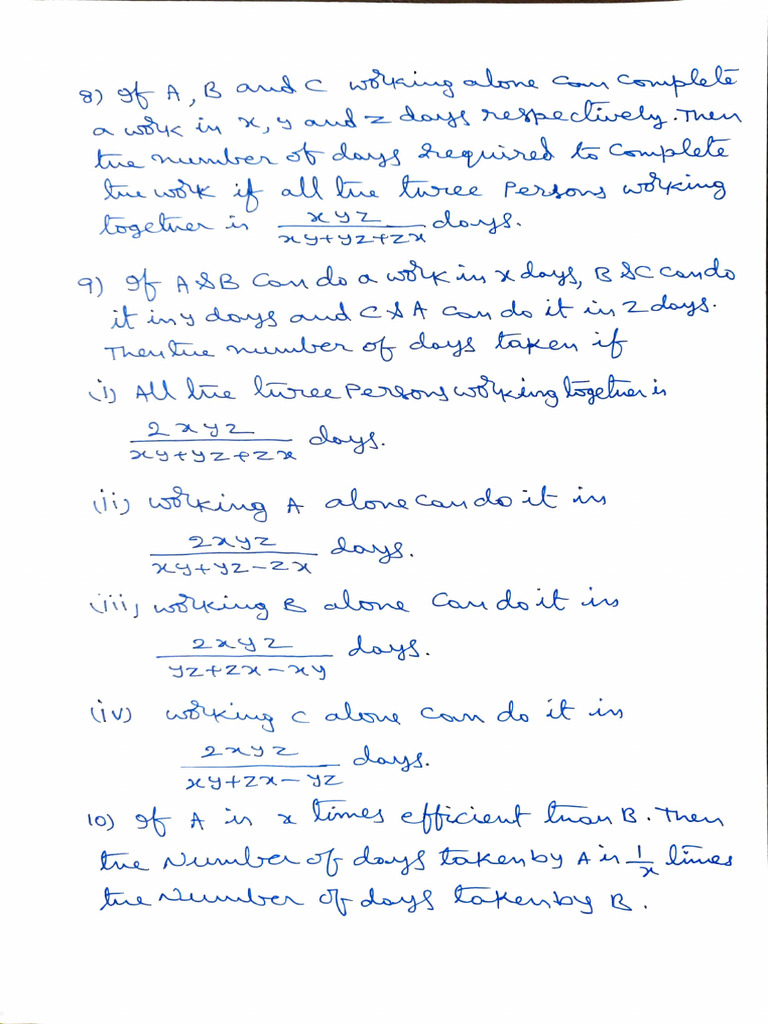 8) If A, B and C working alone can complete
a work in x, y and z days respectively. Then
the number of days required to complete
the work if all the three persons working
together is xyz/(xy+yz+zx) days.
9) If A & B can do a work in x days, B & C can do
it in y days and C & A can do it in z days.
Then the number of days taken if
(i) All the three persons working together is
2xyz/(xy+yz+zx) days.
(ii) working A alone can do it in
2xyz/(xy+yz-zx) days.
(iii) working B alone can do it in
2xyz/(yz+zx-xy) days.
(iv) working C alone can do it in
2xyz/(xy+zx-yz) days.
10) If A is x times efficient than B. Then
the Number of days taken by A is 1/x times
the Number of days taken by B.